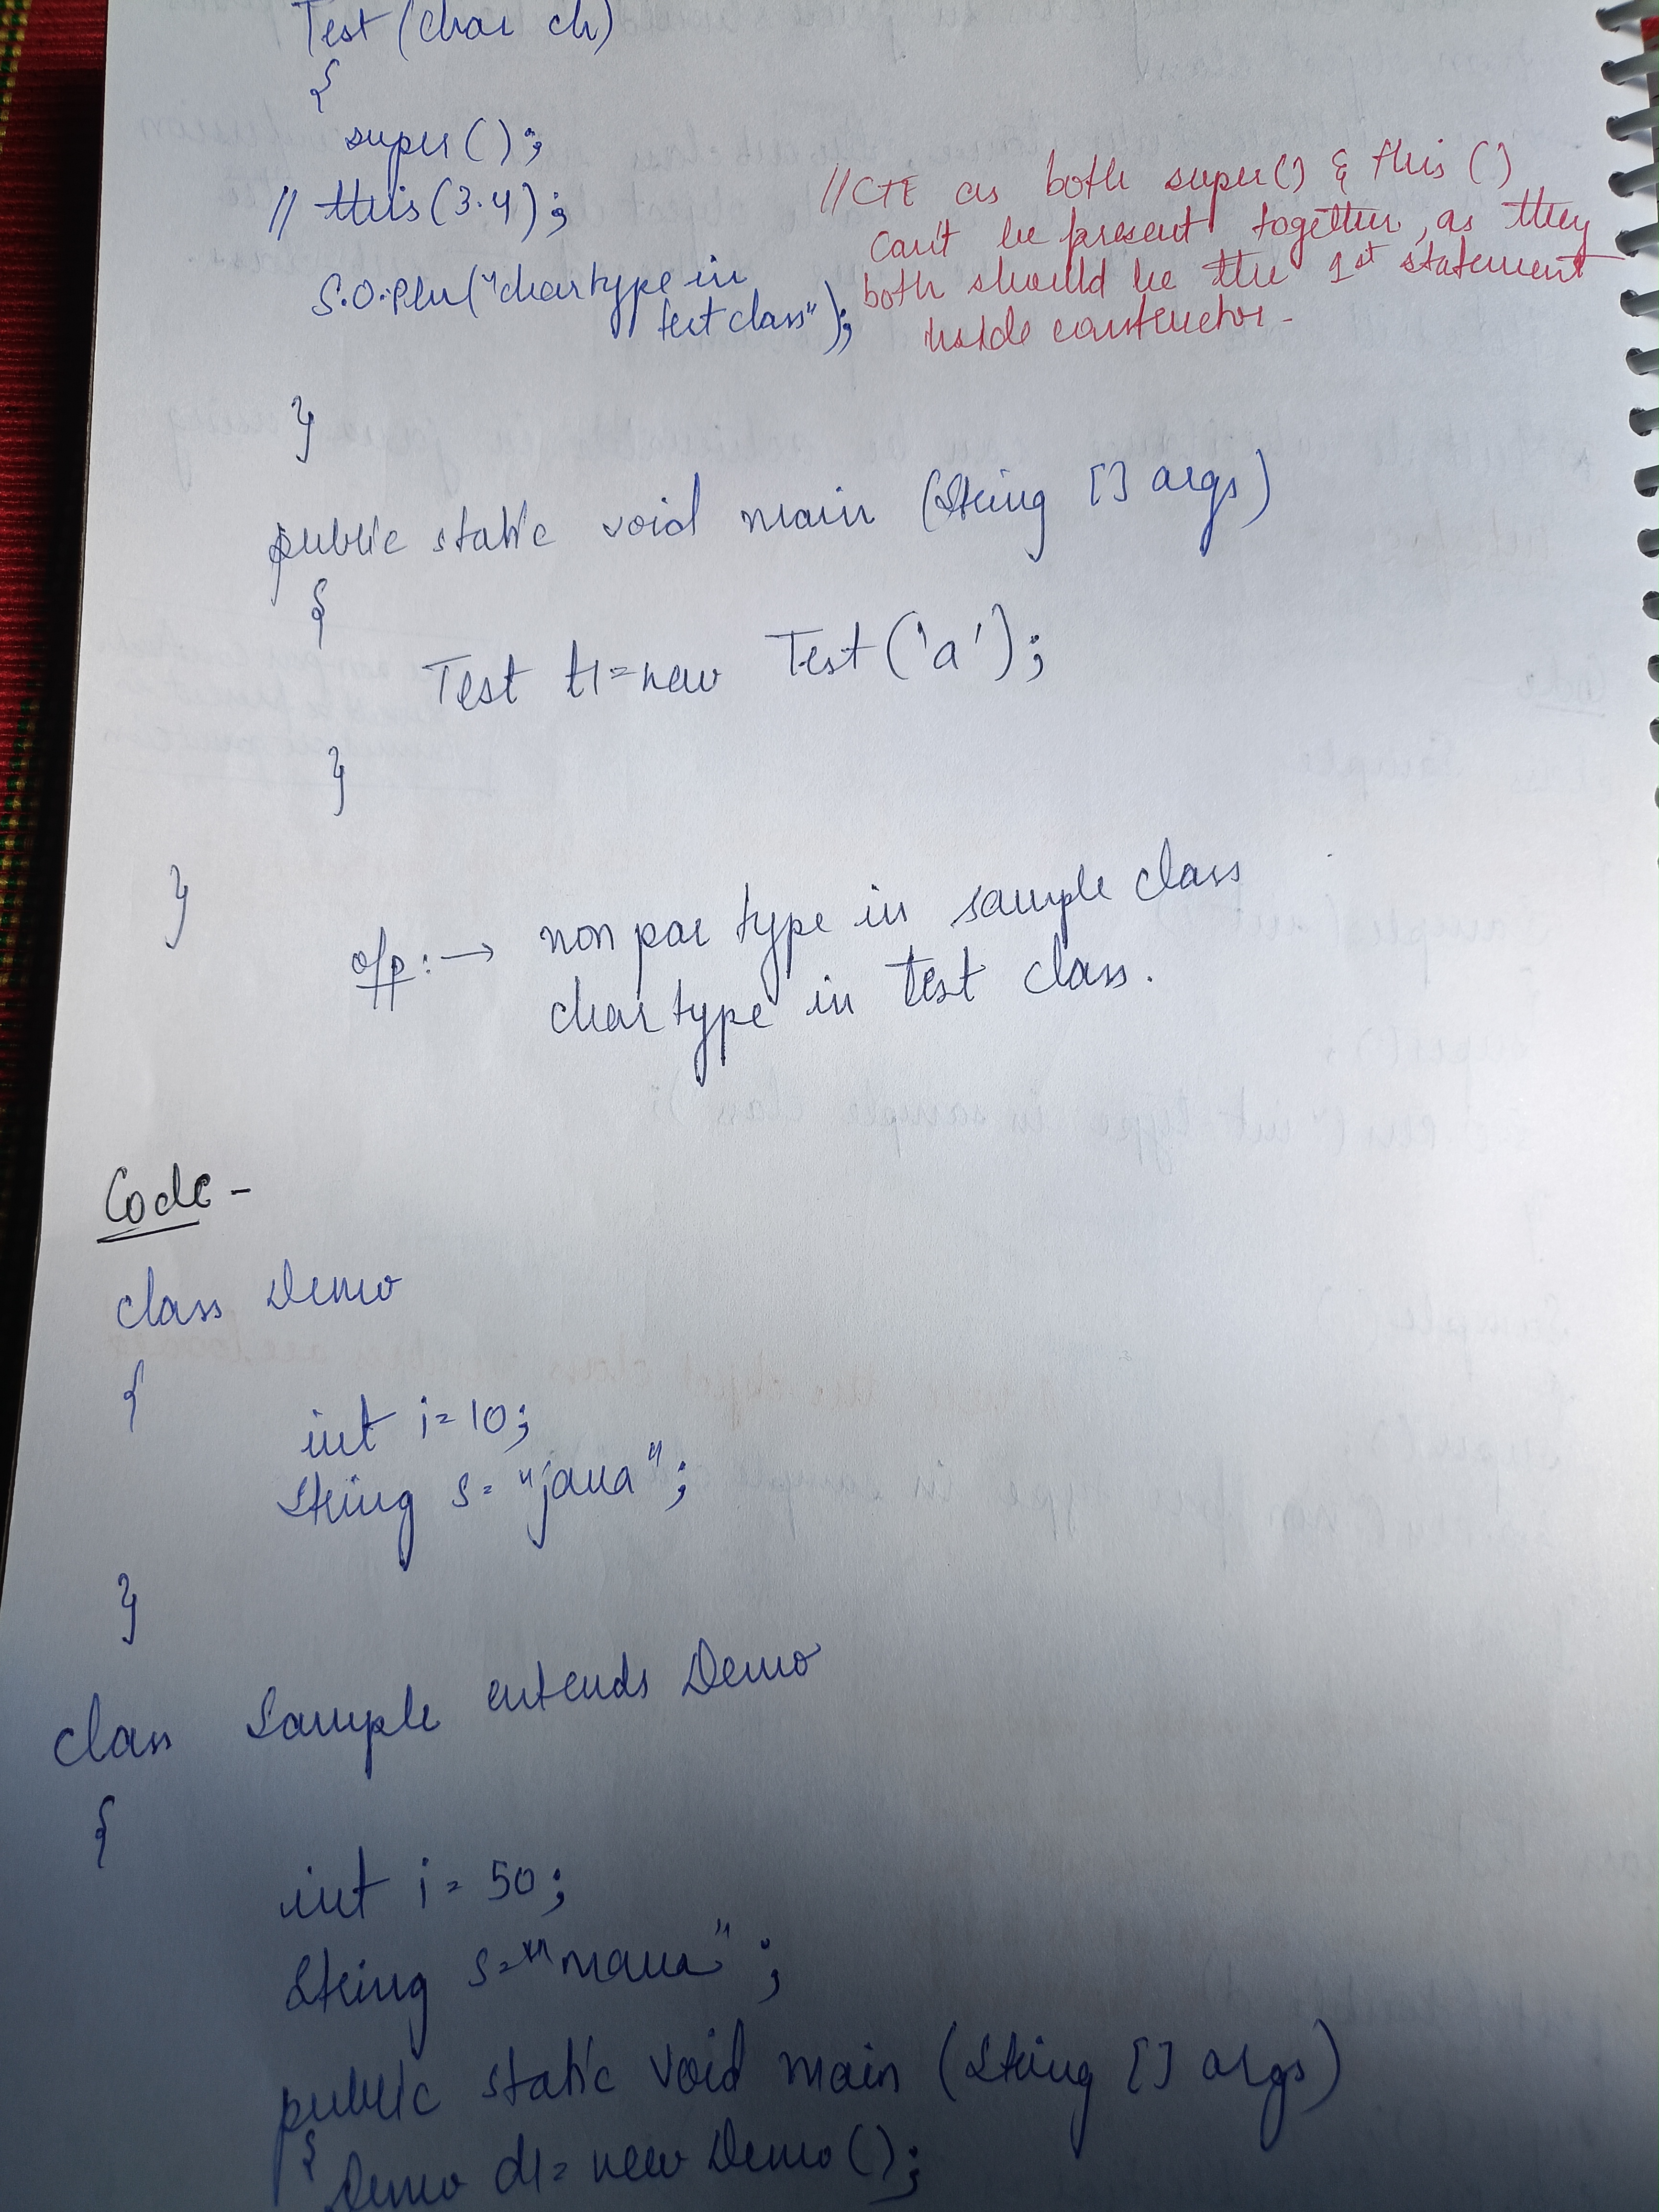 Test (char ch)
{
super();
// this(3.4);
//CTE as both super() & this ()
can't be present together, as they
both should be the 1st statement
inside constructor.
S.O.Pln("char type in
test class");
}
public static void main (String [] args)
{
Test t1=new Test('a');
}
}
o/p:→ non par type in sample class
char type in Test class.
Code -
class Demo
{
int i=10;
String s="java";
}
class Sample extends Demo
{
int i= 50;
String s="mava";
public static void main (String [] args)
{
Demo d1= new Demo();